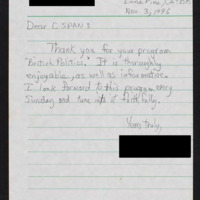 Nov. 3, 1996
Dear C-SPAN:
Thank you for your program
"British Politics." It is thoroughly
enjoyable, as well as informative.
I look forward to this program every
Sunday and tune into it faithfully.
Yours truly,